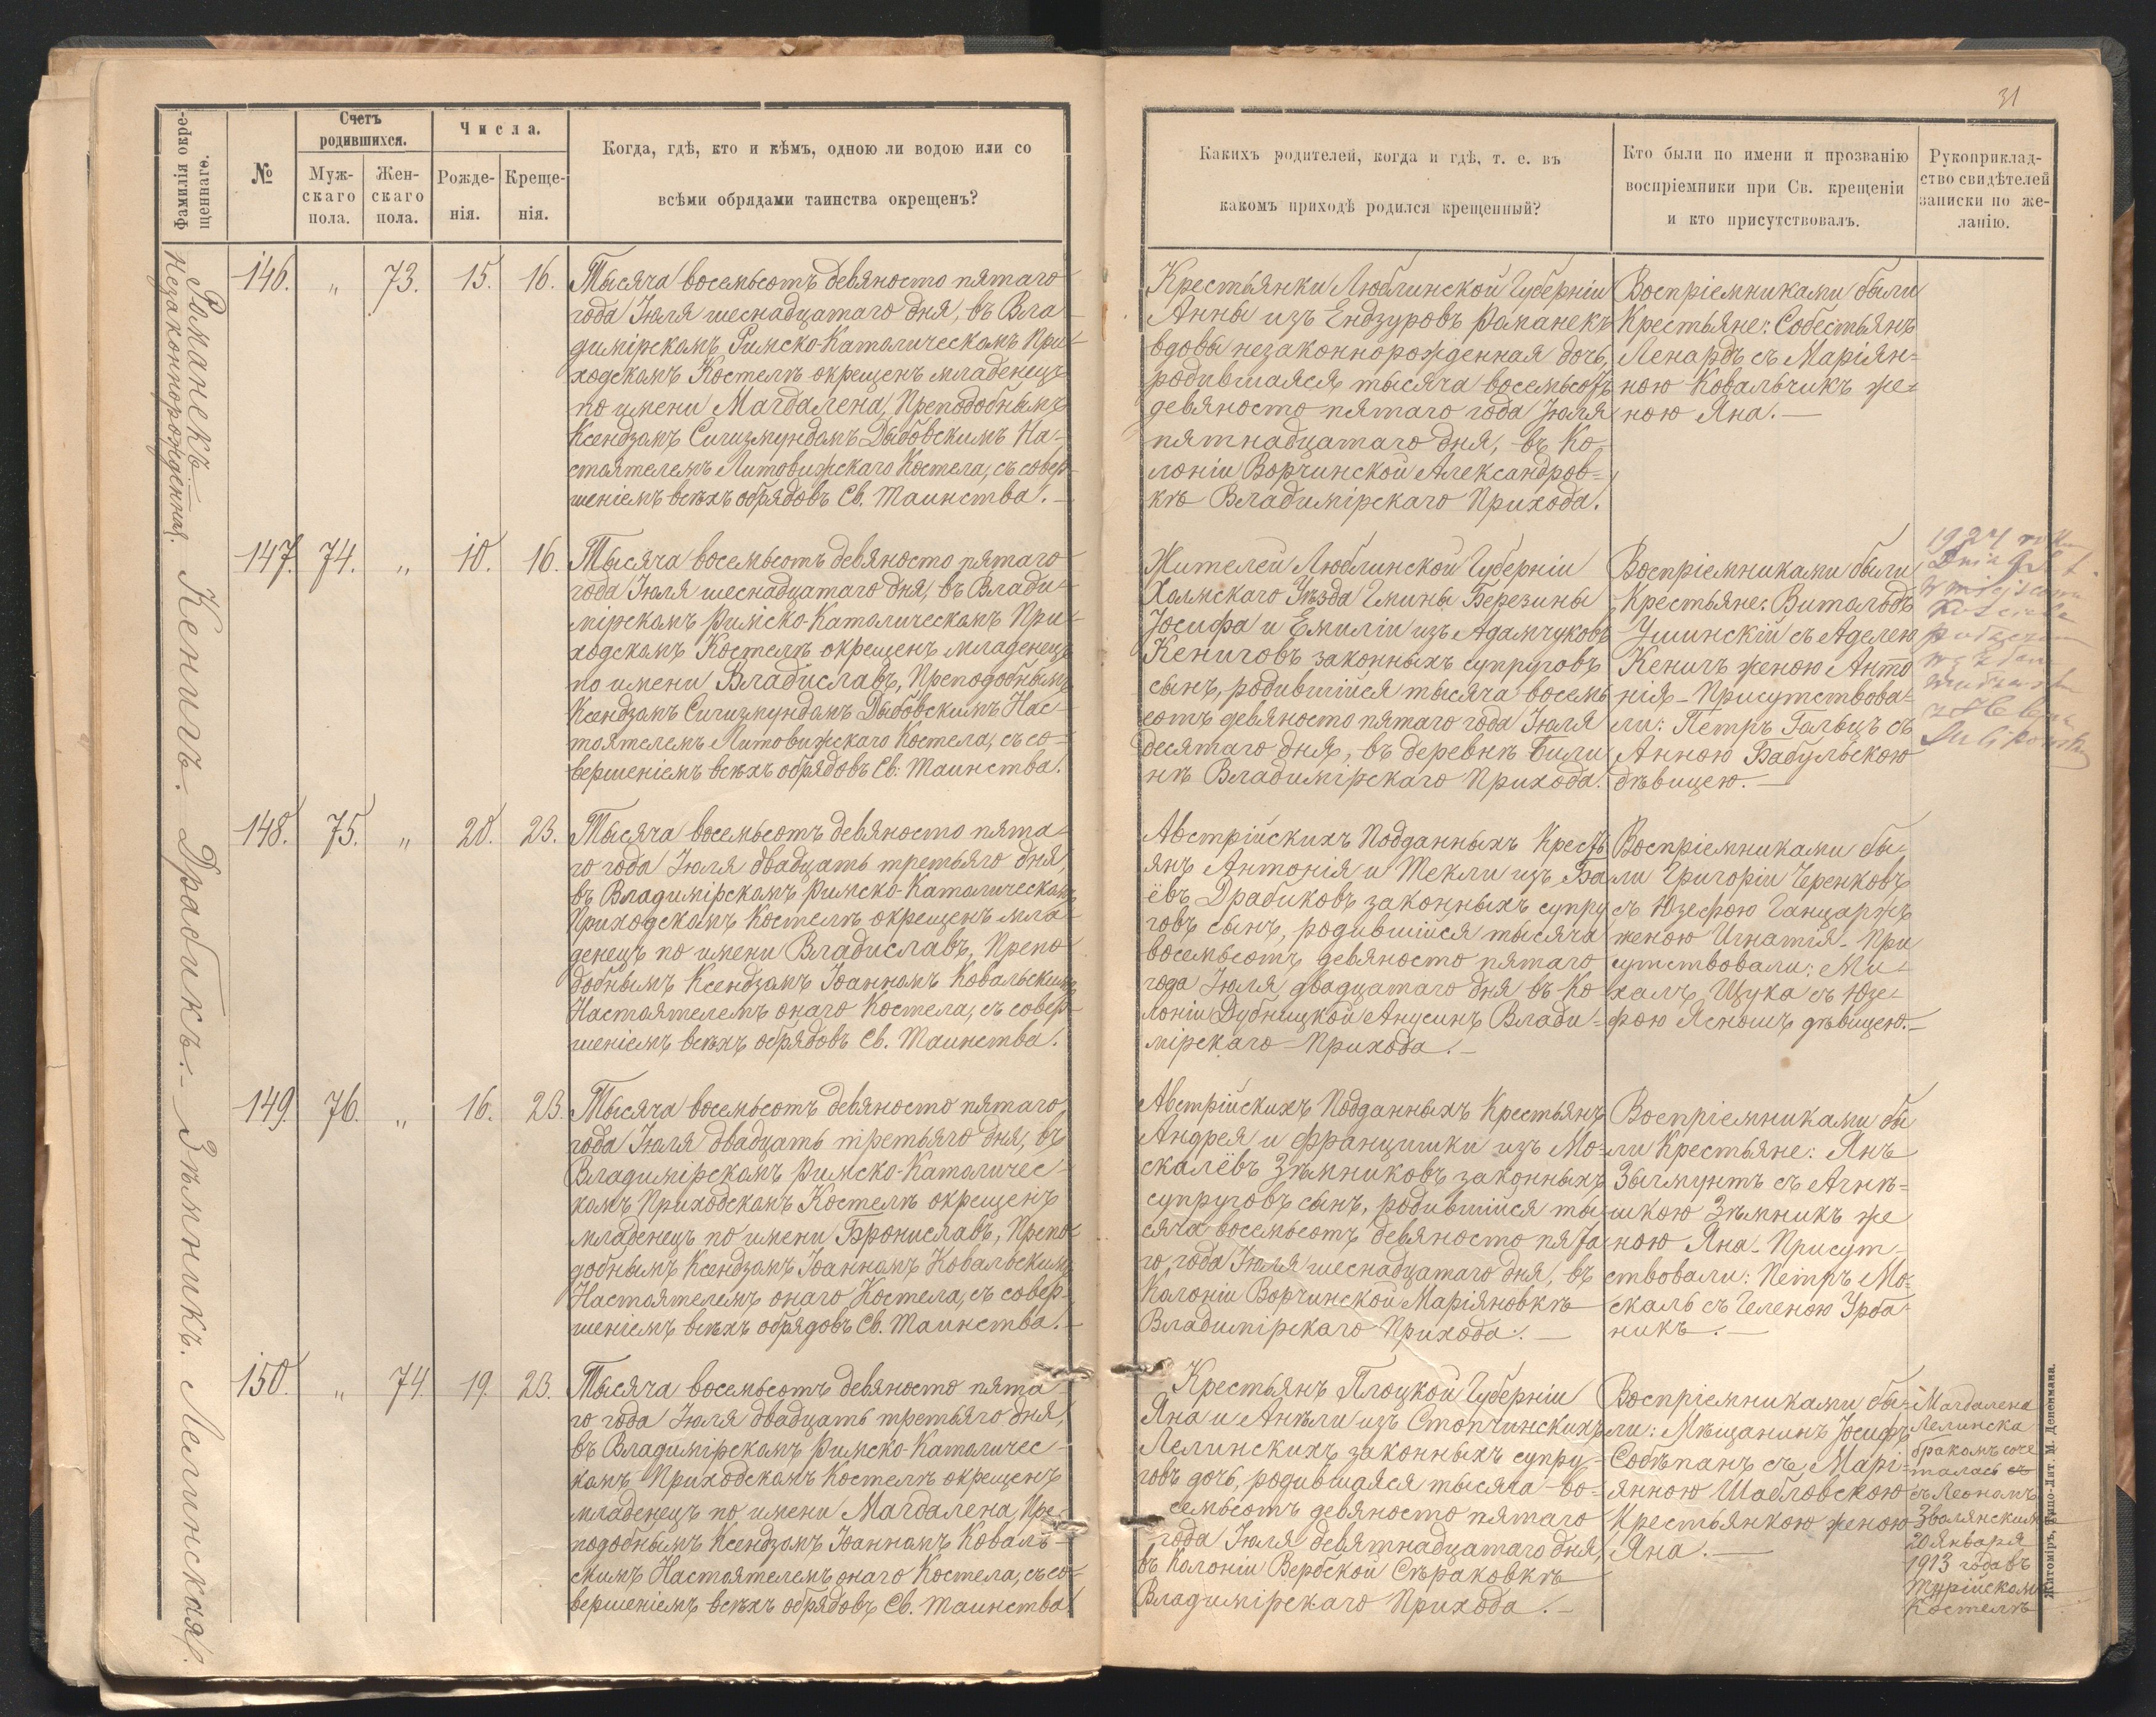 31
Фамилія окре-
щеннаго.
№
Счетъ
родившихся.
Муж-
скаго
пола.
Жен-
скаго
пола.
Числа.
Рожде-
нія.
Креще-
нія.
Когда, гдѣ, кто и кѣмъ, одною ли водою или со
всѣми обрядами таинства окрещенъ?
Какихъ родителей, когда и гдѣ, т. е. въ
какомъ приходѣ родился крещенный?
Кто были по имени и прозванію
воспріемники при Св. крещеніи
и кто присутствовалъ.
Рукоприклад-
ство свидѣтелей
записки по же-
ланію.
Романекъ.
Незаконнорожденная.
146. " 73. 15. 16.
Тысяча восемьсотъ девяносто пятаго
года Іюля шеснадцатаго дня, въ Вла-
димірскомъ Римско-Католическомъ При-
ходскомъ Костелѣ окрещенъ младенецъ
по имени Магдалена, Преподобнымъ
Ксендзомъ Сигизмундомъ Дыбовскимъ На-
стоятелемъ Литовижскаго Костела, съ совер-
шеніемъ всѣхъ обрядовъ Св. Таинства.
Крестьянки Люблинской Губерніи
Анны изъ Ендзуровъ Романекъ
вдовы незаконнорожденная дочь,
родившаяся тысяча восемьсотъ
девяносто пятаго года Іюля
пятнадцатаго дня, въ Ко-
лоніи Ворчинской Александров-
кѣ Владимірскаго Прихода.
Воспріемниками были
Крестьяне: Собестьянъ
Ленардъ съ Маріян-
ною Ковальчикъ же-
ною Яна.
Кенигъ.
147. 74. " 10. 16.
Тысяча восемьсотъ девяносто пятаго
года Іюля шеснадцатаго дня, въ Влади-
мірскомъ Римско-Католическомъ При-
ходскомъ Костелѣ окрещенъ младенецъ
по имени Владиславъ, Преподобнымъ
Ксендзомъ Сигизмундомъ Дыбовскимъ Нас-
тоятелемъ Литовижскаго Костела, съ со-
вершеніемъ всѣхъ обрядовъ Св. Таинства.
Жителей Люблинской Губерніи
Холмскаго Уѣзда Гмины Березины
Іосифа и Емиліи изъ Адамчуковъ
Кениговъ законныхъ супруговъ
сынъ, родившійся тысяча восемь
сотъ девяносто пятаго года Іюля
десятаго дня, въ деревнѣ Били
нѣ Владимірскаго Прихода.
Воспріемниками были
Крестьяне: Витольдъ
Ушинскій съ Аделею
Кенигъ женою Анто
нія - Присутствова-
ли: Петръ Гольцъ съ
Анною Бабульскою
дѣвицею.
Драбикъ.
148. 75. " 20. 23.
Тысяча восемьсотъ девяносто пята-
го года Іюля двадцать третьяго дня,
въ Владимірскомъ Римско-Католическомъ
Приходскомъ Костелѣ окрещенъ мла-
денецъ по имени Владиславъ, Препо-
добнымъ Ксендзомъ Іоанномъ Ковальскимъ
Настоятелемъ онаго Костела, съ совер-
шеніемъ всѣхъ обрядовъ Св. Таинства.
Австрійскихъ Подданныхъ Кресть
янъ Антонія и Текли изъ Ба
ёвъ Драбиковъ законныхъ супру
говъ сынъ, родившійся тысяча
восемьсотъ девяносто пятаго
года Іюля двадцатаго дня въ Ко
лоніи Дубницкой Анусинъ Влади-
мірскаго Прихода.
Воспріемниками бы-
ли Григорій Черенковъ
съ Юзефою Ганцаржъ
женою Игнатія - При
сутствовали: Ми-
халъ Щука съ Юзе-
фою Ясношъ дѣвицею.
Зѣмникъ.
149. 76. " 16. 23.
Тысяча восемьсотъ девяносто пятаго
года Іюля двадцать третьяго дня, въ
Владимірскомъ Римско-Католичес-
комъ Приходскомъ Костелѣ окрещенъ
младенецъ по имени Брониславъ, Препо-
добнымъ Ксендзомъ Іоанномъ Ковальскимъ
Настоятелемъ онаго Костела, съ совер-
шеніемъ всѣхъ обрядовъ Св. Таинства.
Австрійскихъ Подданныхъ Крестьянъ
Андрея и Францишки изъ Мо-
скалёвъ Зѣмниковъ законныхъ
супруговъ сынъ, родившійся ты-
сяча восемьсотъ девяносто пята
го года Іюля шеснадцатаго дня, въ
Колоніи Ворчинской Маріяновкѣ
Владимірскаго Прихода.
Воспріемниками бы
ли Крестьяне: Янъ
Зыгмунтъ съ Агнѣ-
шкою Зѣмникъ же
ною Яна - Присут-
ствовали: Петръ Мо-
скаль съ Геленою Урба-
никъ.
Лелинская.
150. " 74. 19. 23.
Тысяча восемьсотъ девяносто пята
го года Іюля двадцать третьяго дня,
въ Владимірскомъ Римско-Католичес-
комъ Приходскомъ Костелѣ окрещенъ
младенецъ по имени Магдалена, Пре-
подобнымъ Ксендзомъ Іоанномъ Коваль-
скимъ Настоятелемъ онаго Костела, съ со-
вершеніемъ всѣхъ обрядовъ Св. Таинства.
Крестьянъ Плоцкой Губерніи
Яна и Анѣли изъ Стопчинскихъ
Лелинскихъ законныхъ супру-
говъ дочь, родившаяся тысяча во-
семьсотъ девяносто пятаго
года Іюля девятнадцатаго дня,
въ Колоніи Вербской Сѣраковкѣ
Владимірскаго Прихода.
Воспріемниками бы-
ли: Мѣщанинъ Іосифъ
Собѣпанъ съ Марі-
янною Шабловскою
Крестьянкою женою
Яна.
Магдалена
Лелинска
бракомъ соче
талась съ
съ Леономъ
Зволянскимъ
20 Января
1913 года въ
Турійскомъ
Костелѣ
Житоміръ, Типо-Лит. М. Дененмана.